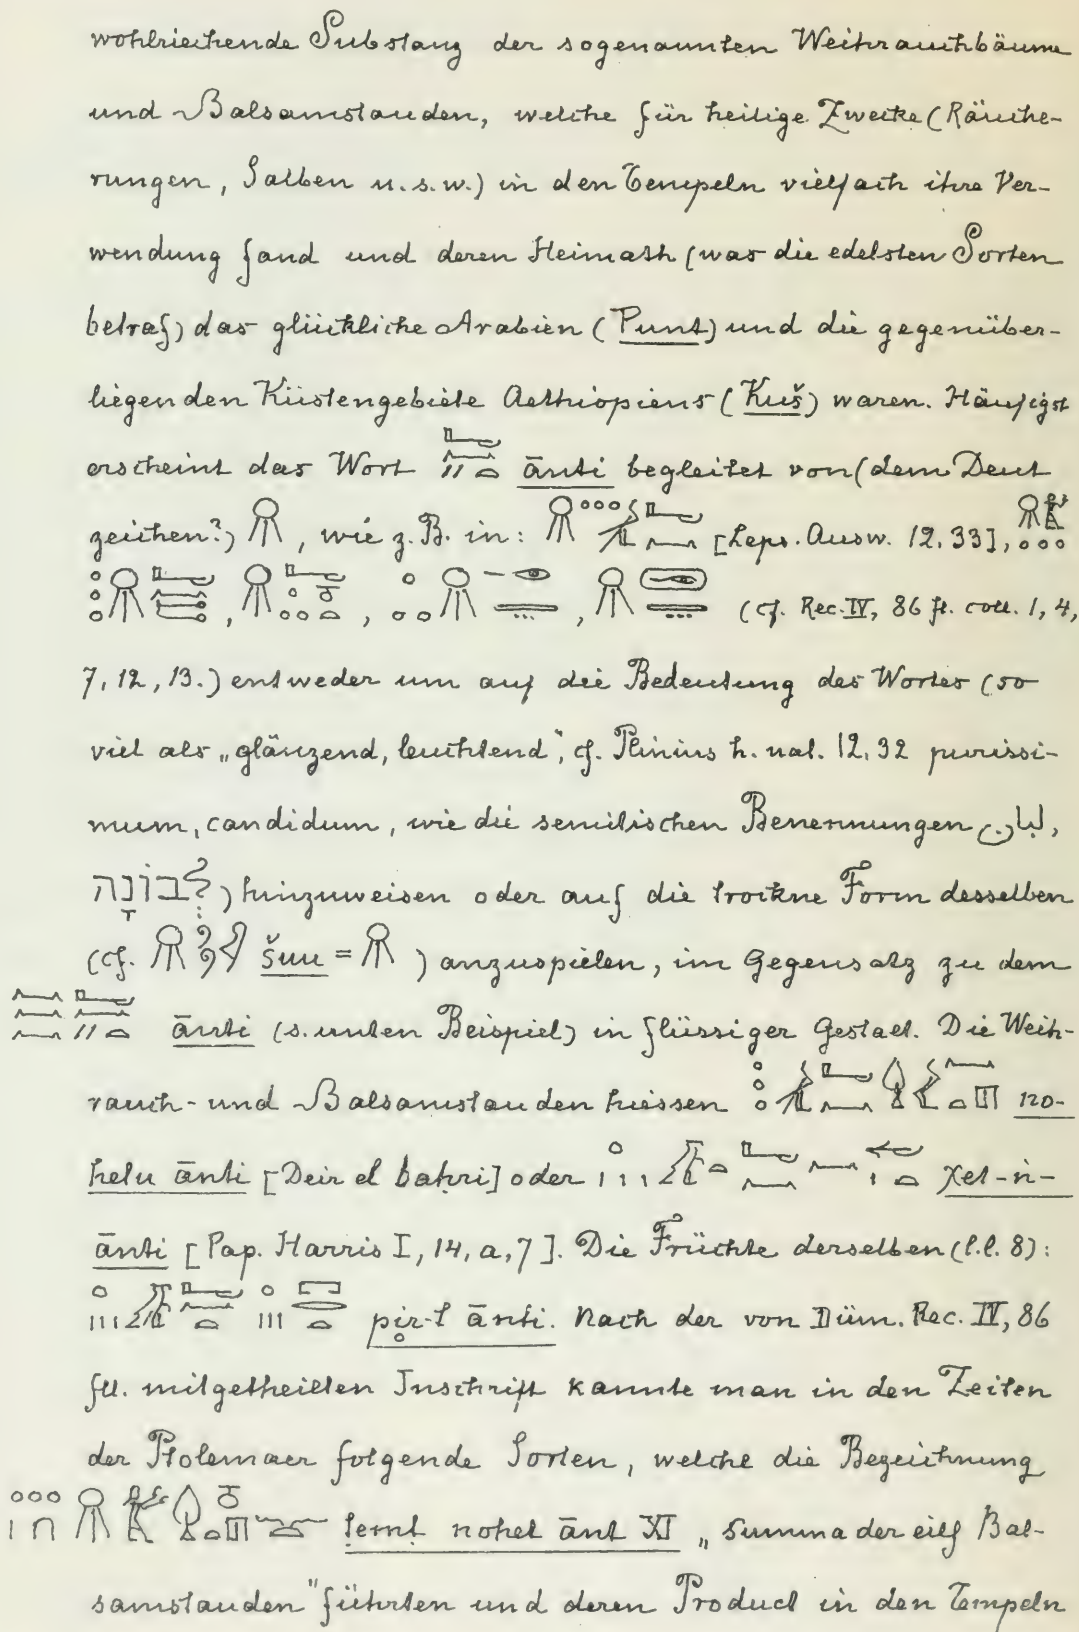 wohlriechende Substanz der sogenannten Weihrauchbäume
und Balsamstauden, welche für heilige Zwecke (Räuche-
rungen, Salben u.s.w.) in den Tempeln vielfach ihre Ver-
wendung fand und deren Heimath (was die edelsten Sorten
betraf) das glückliche Arabien (Punt) und die gegenüber-
liegenden Küstengebiete Aethiopiens (Kuš) waren. Häufigst
erscheint das Wort ānti begleitet von (dem Deut
zeichen?), wie z.B. in: [Leps. Ausw. 12, 33],
(cf. Rec. IV, 86 fl. coll. 1, 4,
7, 12, 13.) entweder um auf die Bedeutung des Wortes (so
viel als „glänzend, leuchtend", cf. Plinius h. nat. 12, 32 purissi-
mum, candidum, wie die semitischen Benennungen لبان,
לְבוֹנָה) hinzuweisen oder auf die trockne Form desselben
(cf. šuu = ) anzuspielen, im Gegensatz zu dem
ānti (s. unten Beispiel) in flüssiger Gestalt. Die Weih-
rauch- und Balsamstauden hiessen no-
hetu ānti [Deir el bahri] oder χet-n-
ānti [Pap. Harris I, 14, a, 7]. Die Früchte derselben (l.l. 8):
pir-t ānti. Nach der von Düm. Rec. IV, 86
fll. mitgetheilten Inschrift kannte man in den Zeiten
der Ptolemaer folgende Sorten, welche die Bezeichnung
nohet ānt XI „Summa der eilf Bal-
samstauden" führten und deren Product in den Tempeln